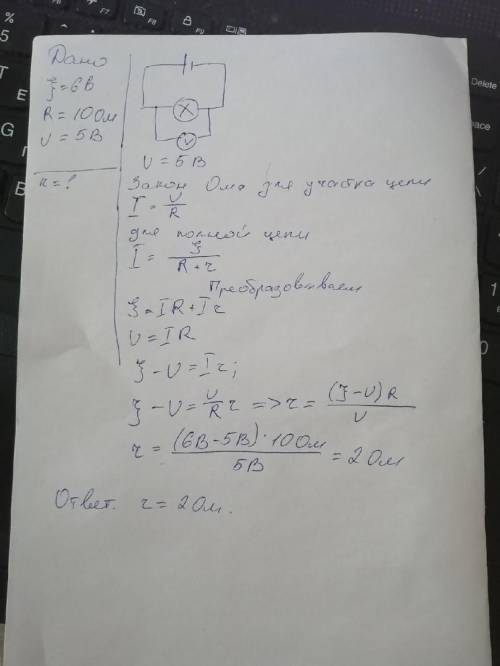 Дано
ξ = 6В
R = 10 Ом
U = 5В
r = ?
V
U = 5В
Закон Ома для участка цепи
I = U/R
для полной цепи
I = ξ/(R + r)
Преобразовываем
ξ = IR + Ir
U = IR
ξ - U = Ir;
ξ - U = U/R r => r = (ξ - U)R/U
r = (6В - 5В) · 10 Ом/5В = 2 Ом
Ответ. r = 2 Ом.